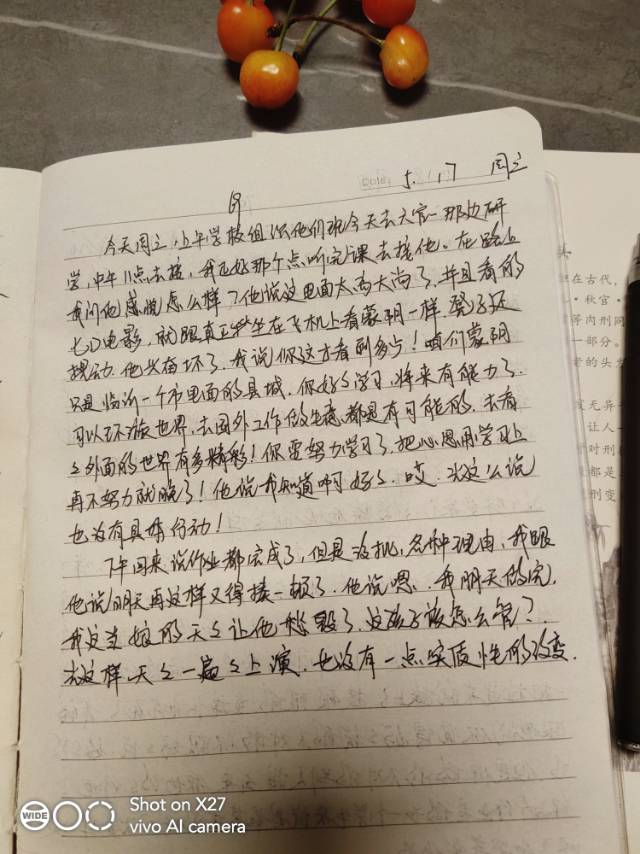 5.17 周三
今天周三,上午学校组织他们班今天去大官一那边研
学,中午11点去接,我正好那个点听完课去接他。在路上
我问他感觉怎么样?他说这里面太高大尚了,并且看的
七D电影,就跟真正坐在飞机上看蒙阴一样,凳子还
扰动,他兴奋坏了,我说你这才看到多少!咱们蒙阴
只是临沂一个市里面的县城,你好好学习,将来有能力了,
可以环游世界,去国外工作做生意,都是有可能的,去看
之外面的世界有多精彩!你要努力学习了,把心思用学习上
再不努力就晚了!他说我知道啊好之,哎,光这么说
也没有具体行动!
下午回来说作业都完成了,但是没批,各种理由,我跟
他说明天再这样又得揍一顿了,他说嗯,我明天做完,
我这当娘的天之让他愁毁了,这孩子该怎么管?
光这样天之一遍之上演,也没有一点实质性的改变.
在古代,
秋宫
等肉刑同
一部分。
的头发
无异
让人一
对刑
都是
刑变
WIDE
Shot on X27
vivo AI camera